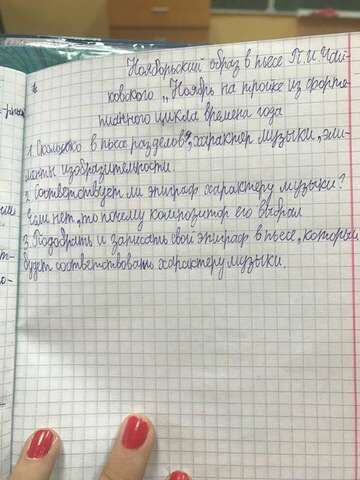 Ноябрьский образ в пьесе П.И.Чай-
ковского „Ноябрь на тройке из форте-
пианного цикла времена года
1. Сколько в пьесе разделов?, характер музыки, эле-
менты изобразительности.
2. Соответствует ли эпиграф характеру музыки?
Если нет, то почему композитор его выбрал
3. Подобрать и записать свой эпиграф в пьесе, который
будет соответствовать характеру музыки.